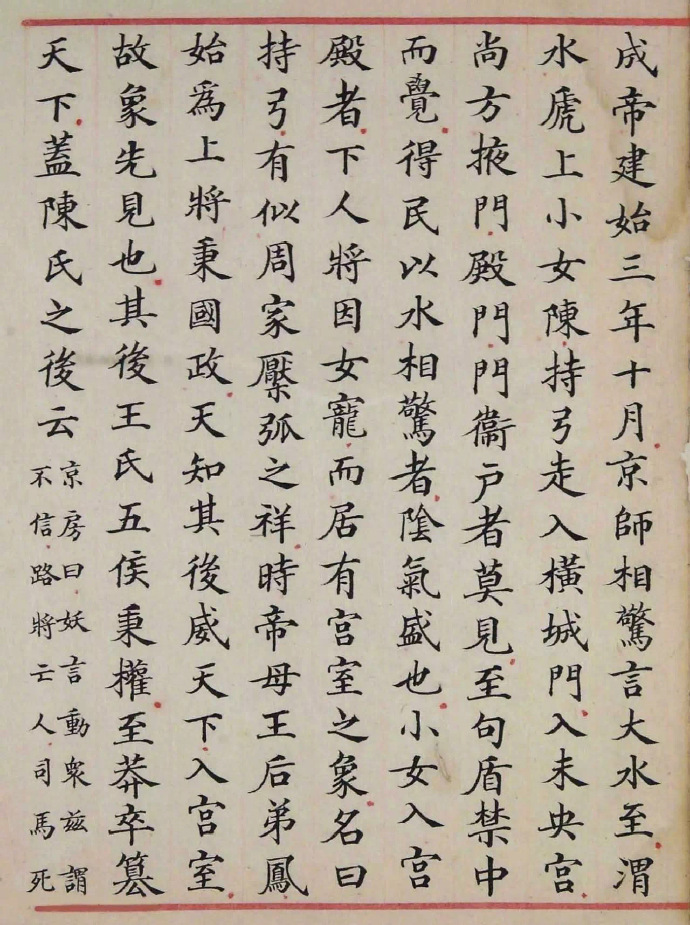 成帝建始三年十月京師相驚言大水至渭
水虒上小女陳持弓走入橫城門入未央宮
尚方掖門殿門門衞戶者莫見至句盾禁中
而覺得民以水相驚者陰氣盛也小女入宮
殿者下人將因女寵而居有宮室之象名曰
持弓有似周家檿弧之祥時帝母王后弟鳳
始爲上將秉國政天知其後威天下入宮室
故象先見也其後王氏五侯秉權至莽卒篡
天下蓋陳氏之後云
京房曰妖言動衆茲謂
不信路將亡人司馬死